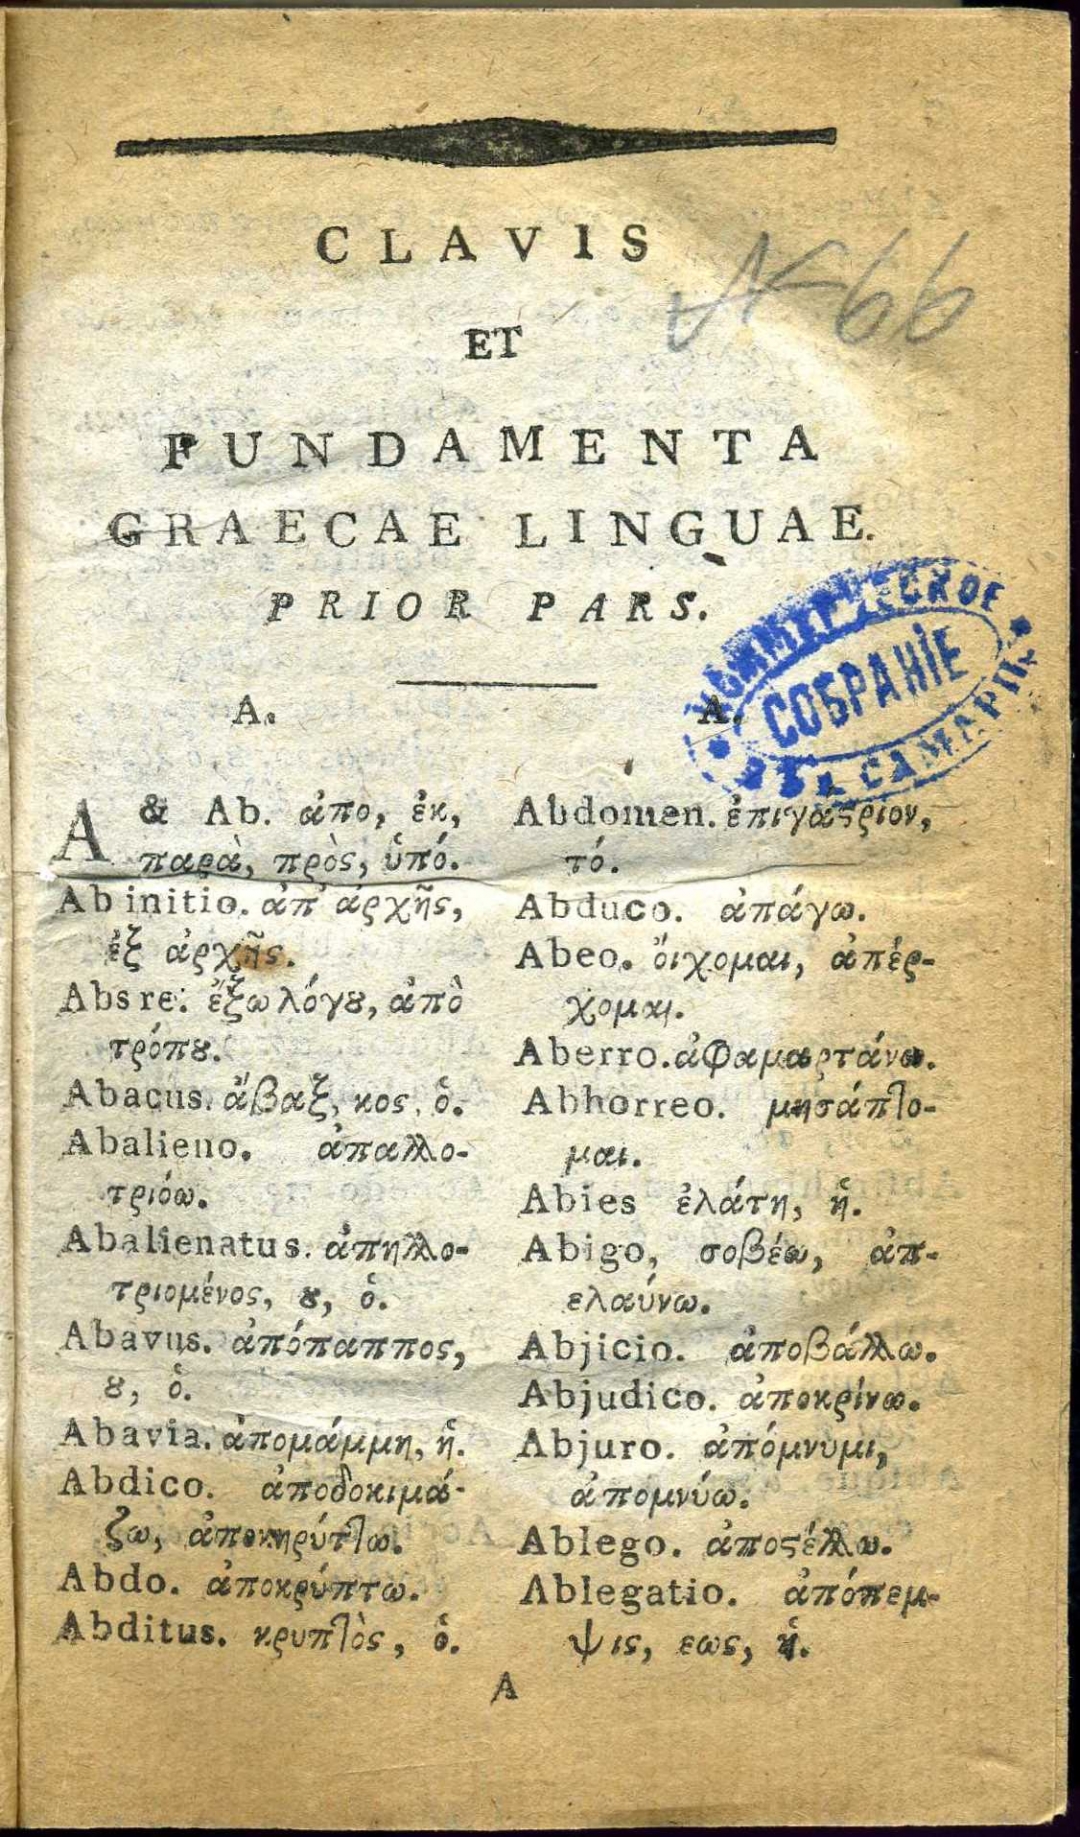 CLAVIS
№ 66
ET
FUNDAMENTA
GRAECAE LINGUAE.
PRIOR PARS.
СОБРАНІЕ
A.
A & Ab. ἀπο, ἐκ,
παρὰ, πρὸς, ὑπό.
Ab initio. ἀπ' ἀρχῆς,
ἐξ ἀρχῆς.
Abs re. ἔξω λόγȣ, ἀπὸ
τρόπȣ.
Abacus. ἄβαξ, κος, ὁ.
Abalieno. ἀπαλλο-
τριόω.
Abalienatus. ἀπηλλο-
τριομένος, ȣ, ὁ.
Abavus. ἀπόπαππος,
ȣ, ὁ.
Abavia. ἀπομάμμη, ἡ.
Abdico. ἀποδοκιμά-
ζω, ἀποκηρύττω.
Abdo. ἀποκρύπτω.
Abditus. κρυπτὸς, ὁ.
A.
Abdomen. ἐπιγάϛριον,
τό.
Abduco. ἀπάγω.
Abeo. ὄιχομαι, ἀπέρ-
χομαι.
Aberro. ἀφαμαρτάνω.
Abhorreo. μησάπτο-
μαι.
Abies ἐλάτη, ἡ.
Abigo, σοβέω, ἀπ-
ελαύνω.
Abjicio. ἀποβάλλω.
Abjudico. ἀποκρίνω.
Abjuro. ἀπόμνυμι,
ἀπομνύω.
Ablego. ἀποϛέλλω.
Ablegatio. ἀπόπεμ-
ψις, εως, ἡ.
A